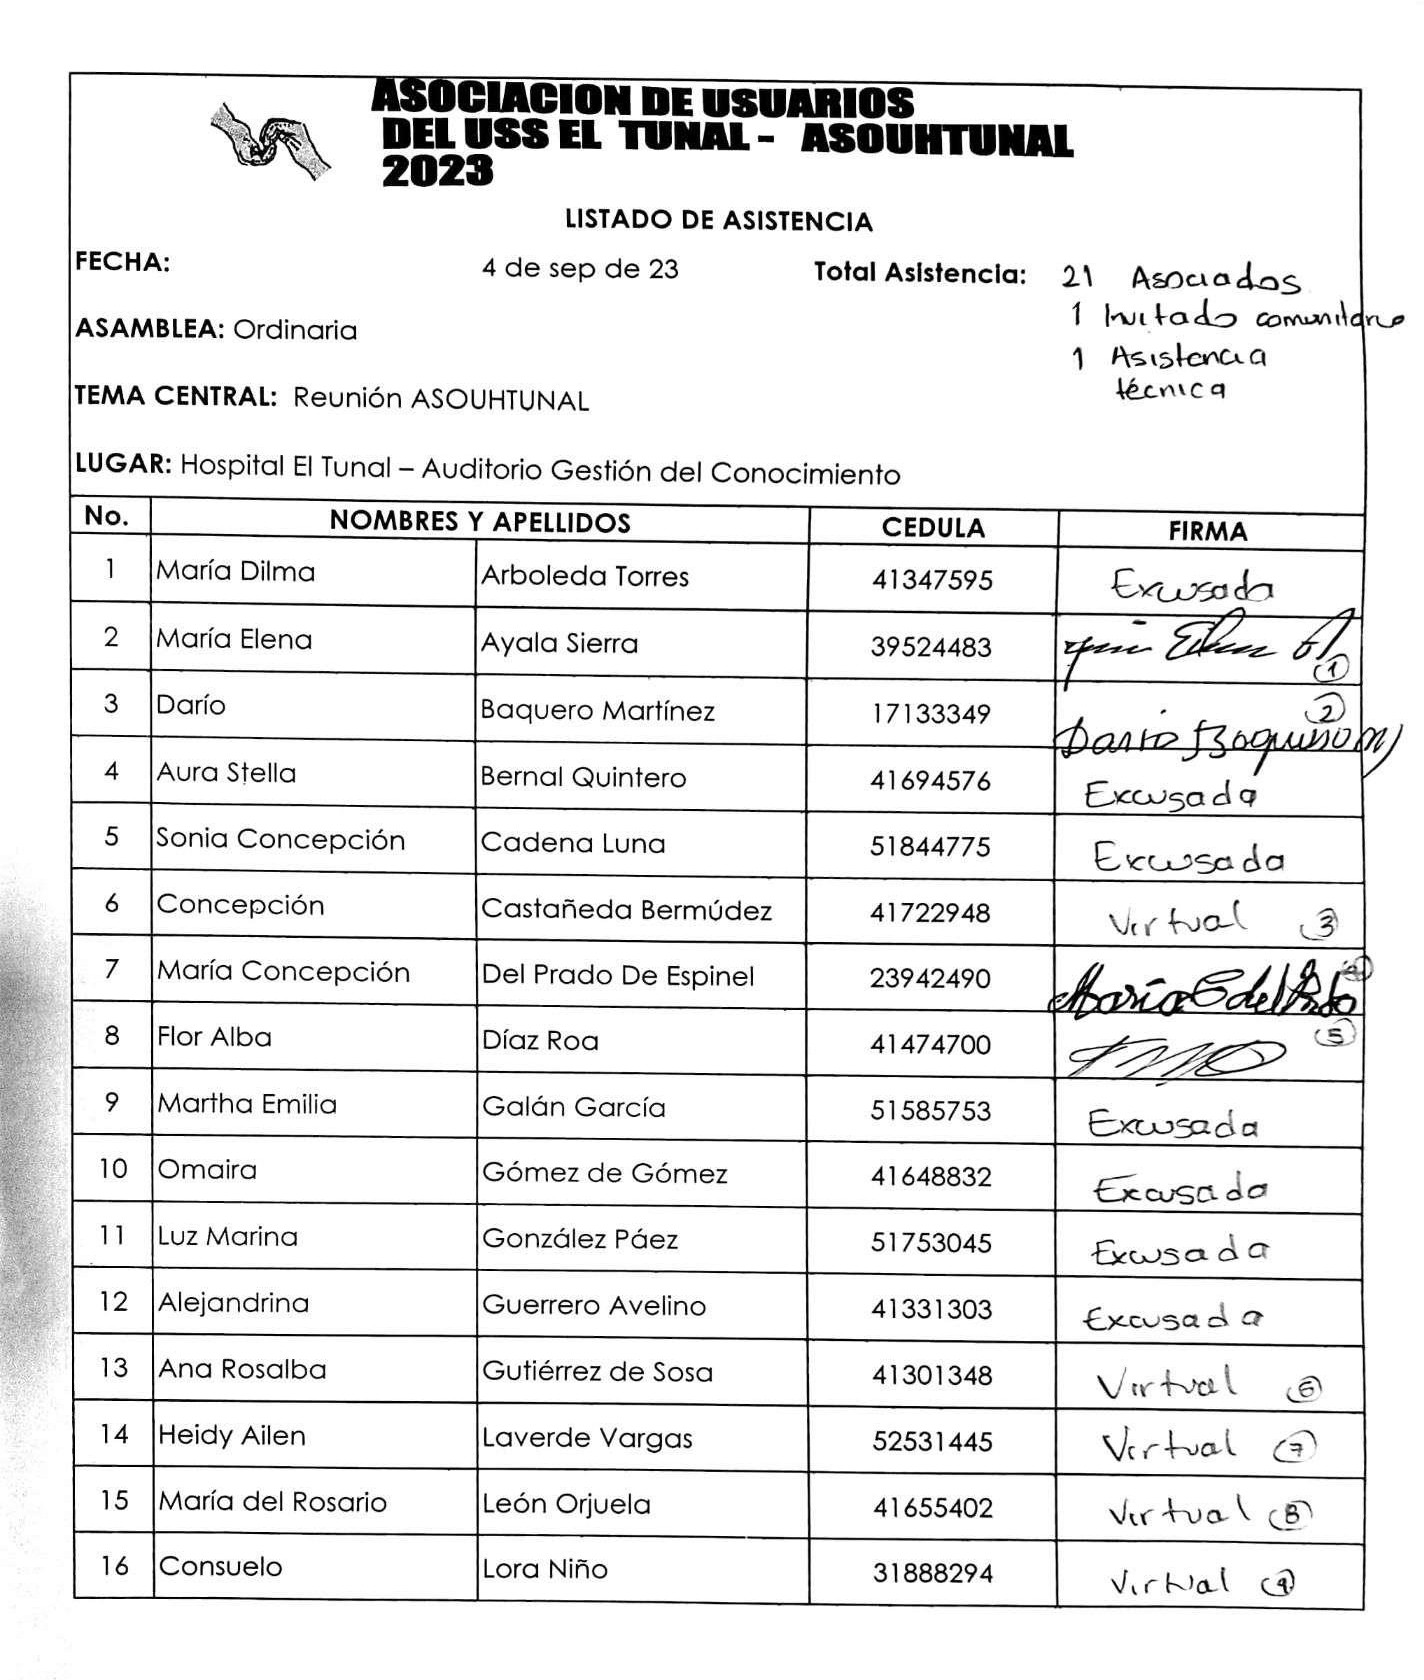 ASOCIACION DE USUARIOS
DEL USS EL TUNAL - ASOUHTUNAL
2023
LISTADO DE ASISTENCIA
FECHA: 4 de sep de 23 Total Asistencia: 21 Asociados
1 Invitado comunitario
ASAMBLEA: Ordinaria
1 Asistencia
técnica
TEMA CENTRAL: Reunión ASOUHTUNAL
LUGAR: Hospital El Tunal – Auditorio Gestión del Conocimiento
No. NOMBRES Y APELLIDOS CEDULA FIRMA
1 María Dilma Arboleda Torres 41347595 Excusada
2 María Elena Ayala Sierra 39524483 1
3 Darío Baquero Martínez 17133349 Dario Baquero M 2
4 Aura Stella Bernal Quintero 41694576 Excusada
5 Sonia Concepción Cadena Luna 51844775 Excusada
6 Concepción Castañeda Bermúdez 41722948 Virtual 3
7 María Concepción Del Prado De Espinel 23942490 María C del Prado 4
8 Flor Alba Díaz Roa 41474700 5
9 Martha Emilia Galán García 51585753 Excusada
10 Omaira Gómez de Gómez 41648832 Excusada
11 Luz Marina González Páez 51753045 Excusada
12 Alejandrina Guerrero Avelino 41331303 Excusada
13 Ana Rosalba Gutiérrez de Sosa 41301348 Virtual 6
14 Heidy Ailen Laverde Vargas 52531445 Virtual 7
15 María del Rosario León Orjuela 41655402 Virtual 8
16 Consuelo Lora Niño 31888294 Virtual 9